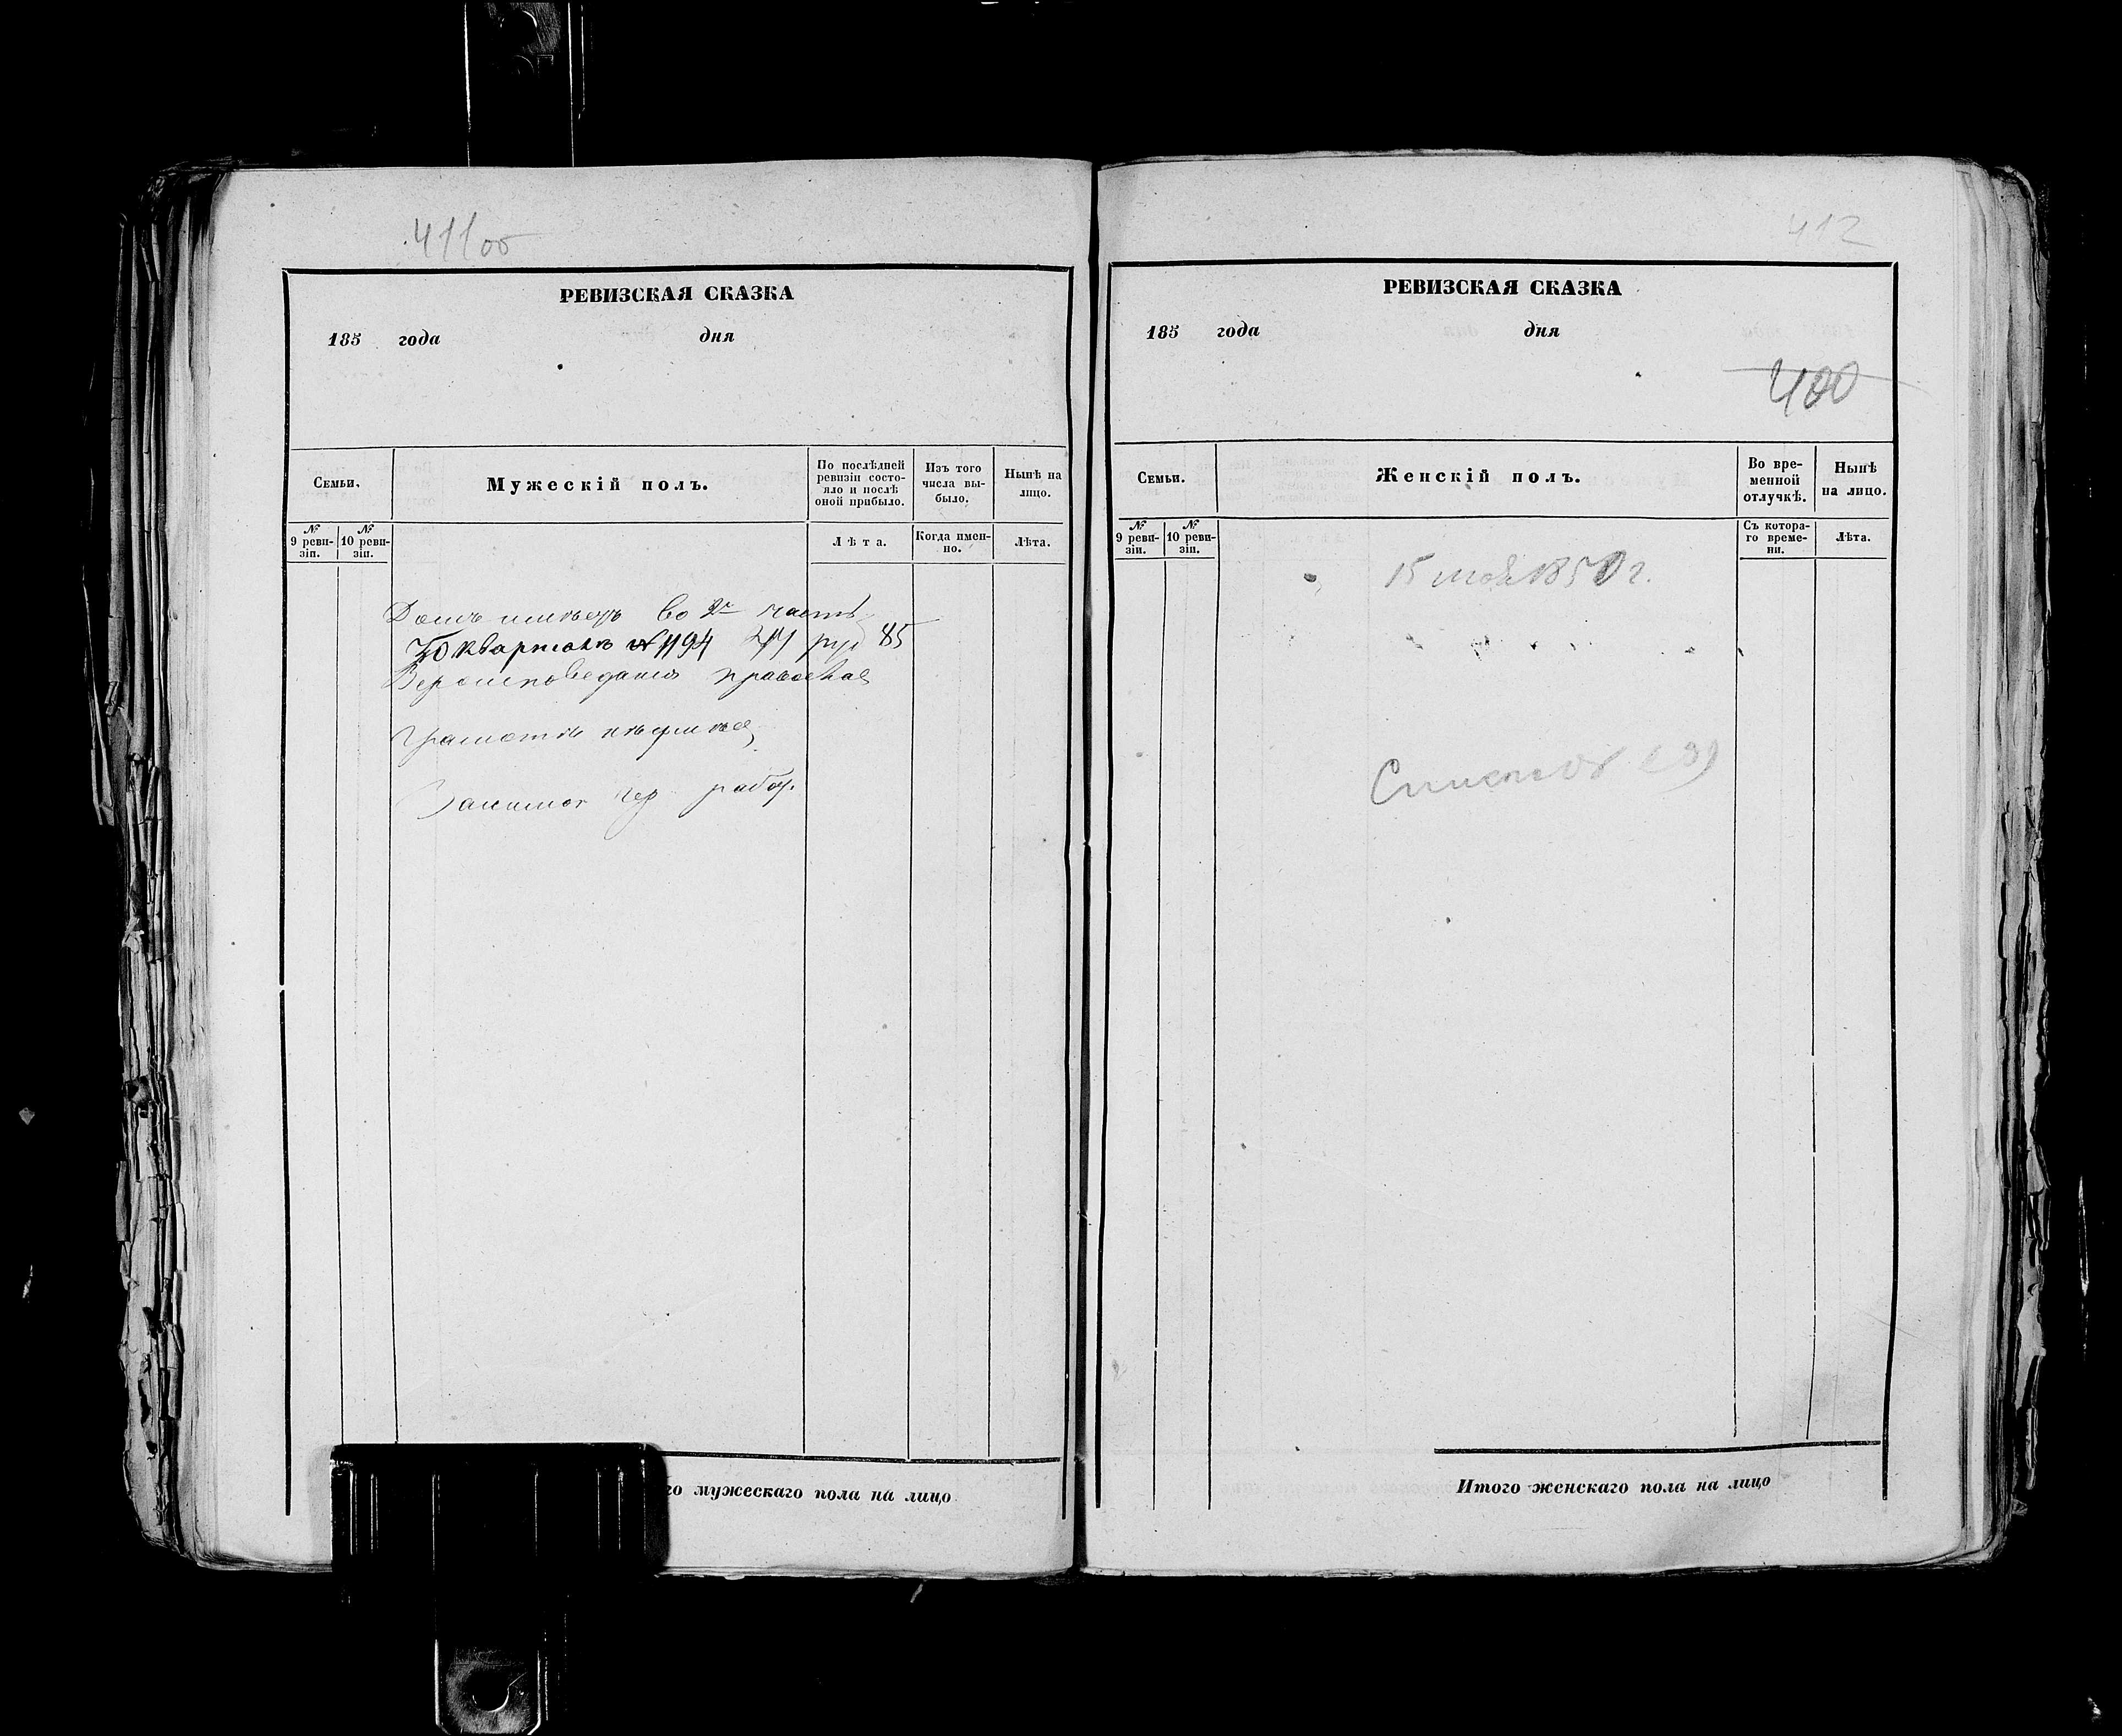 411 об
РЕВИЗСКАЯ СКАЗКА
185 года дня
Семьи.
Мужескій полъ.
По послѣдней ревизіи состояло и послѣ оной прибыло.
Изъ того числа выбыло.
Нынѣ на лицо.
№ 9 ревизіи.
№ 10 ревизіи.
Лѣта.
Когда именно.
Лѣта.
Домъ имѣетъ во 2й часть
квартала № 1194 85
Вероисповедания
Грамотѣ
раб
го мужескаго пола на лицо
412
РЕВИЗСКАЯ СКАЗКА
185 года дня
400
Семьи.
Женскій полъ.
Во временной отлучкѣ.
Нынѣ на лицо.
№ 9 ревизіи.
№ 10 ревизіи.
Съ котораго времени.
Лѣта.
15 мая 1850 г.
Итого женскаго пола на лицо